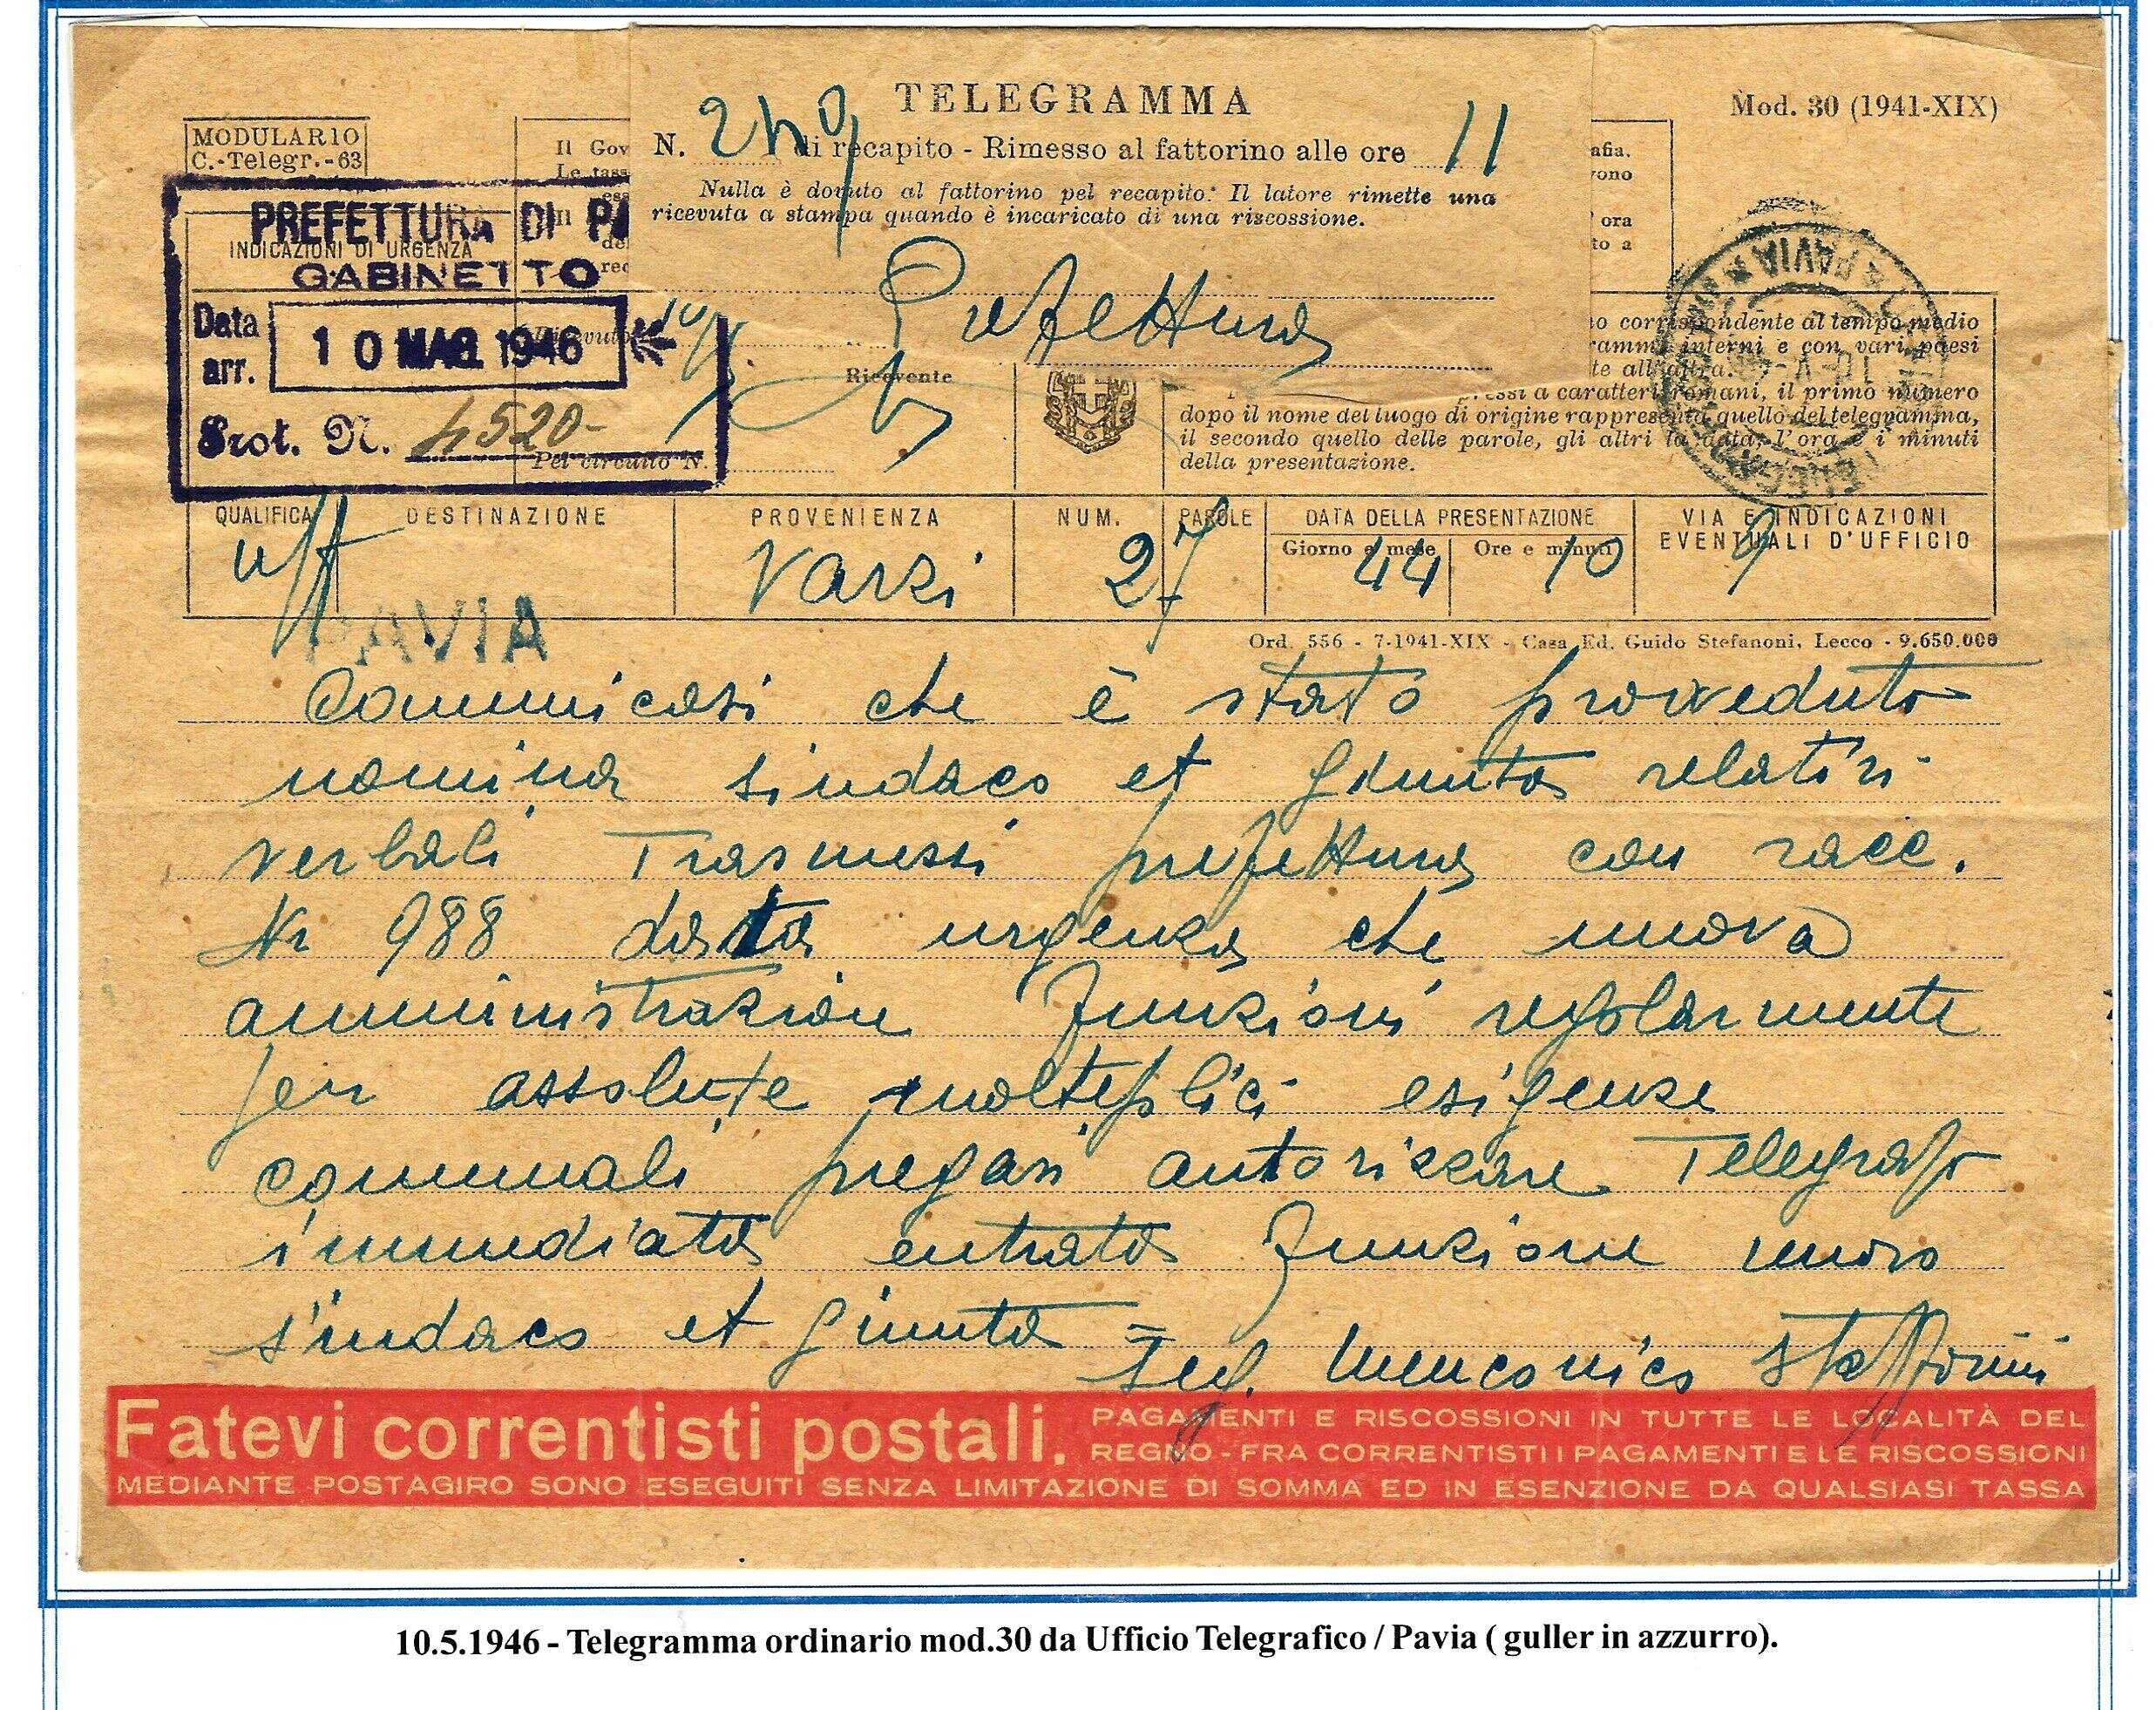 TELEGRAMMA
Mod. 30 (1941-XIX)
MODULARIO
C.-Telegr.-63
N. di recapito - Rimesso al fattorino alle ore 11
Nulla è dovuto al fattorino pel recapito: Il latore rimette una
ricevuta a stampa quando è incaricato di una riscossione.
Il Gov
Le tass
afia.
ora
to a
PREFETTURA DI PA
INDICAZIONI DI URGENZA
GABINETTO
Data
arr.
10 MAG. 1946
Prot. N. 4520-
Prefettura
Ricevente
Pel circuito N.
PAVIA
corrispondente al tempo medio
interni e con vari paesi
te all'altra.
a caratteri romani, il primo numero
dopo il nome del luogo di origine rappresenta quello del telegramma,
il secondo quello delle parole, gli altri la data, l'ora e i minuti
della presentazione.
QUALIFICA DESTINAZIONE PROVENIENZA NUM. PAROLE DATA DELLA PRESENTAZIONE VIA E INDICAZIONI
EVENTUALI D'UFFICIO
Giorno e mese Ore e minuti
Varzi 27 44 10 9
PAVIA
Ord. 556 - 7-1941-XIX - Casa Ed. Guido Stefanoni, Lecco - 9.650.000
Comunicasi che è stato provveduto
nomina sindaco et giunta relativi
verbali trasmessi prefettura con racc.
Nr 988 data urgenza che nuova
amministrazione funzioni regolarmente
per assolute molteplici esigenze
comunali pregasi autorizzare telegrafo
immediata entrata funzione nuovo
sindaco et giunta =
Seg. Menconico Stafforini
Fatevi correntisti postali. PAGAMENTI E RISCOSSIONI IN TUTTE LE LOCALITÀ DEL
REGNO - FRA CORRENTISTI I PAGAMENTI E LE RISCOSSIONI
MEDIANTE POSTAGIRO SONO ESEGUITI SENZA LIMITAZIONE DI SOMMA ED IN ESENZIONE DA QUALSIASI TASSA
10.5.1946 - Telegramma ordinario mod.30 da Ufficio Telegrafico / Pavia ( guller in azzurro).